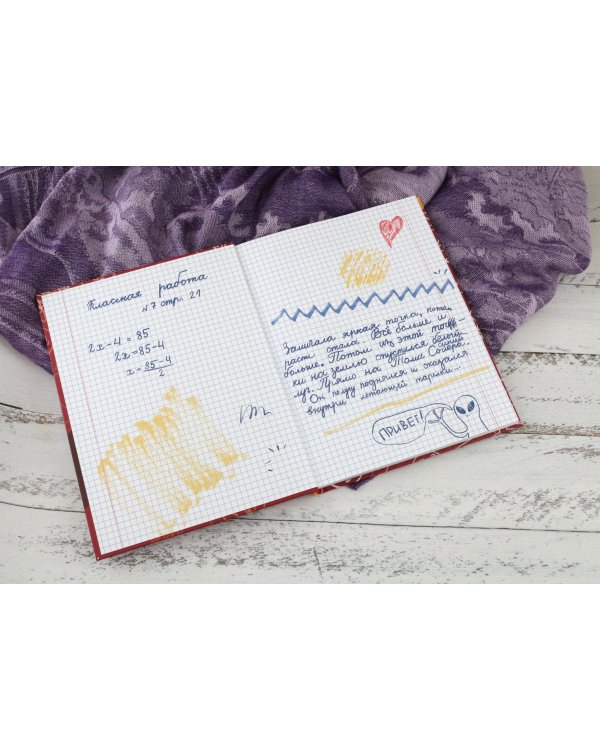 Классная работа
№7 стр. 21
2x-4 = 85
2x = 85-4
x = 85-4
2
Засияла яркая точка, пото
расти стала. Всё больше и
больше. Потом из этой точ
ки на землю спустился белый
луч. Прямо на Тома Сойера.
Он поднялся и оказался
внутри летающей тарелки...
ПРИВЕТ!